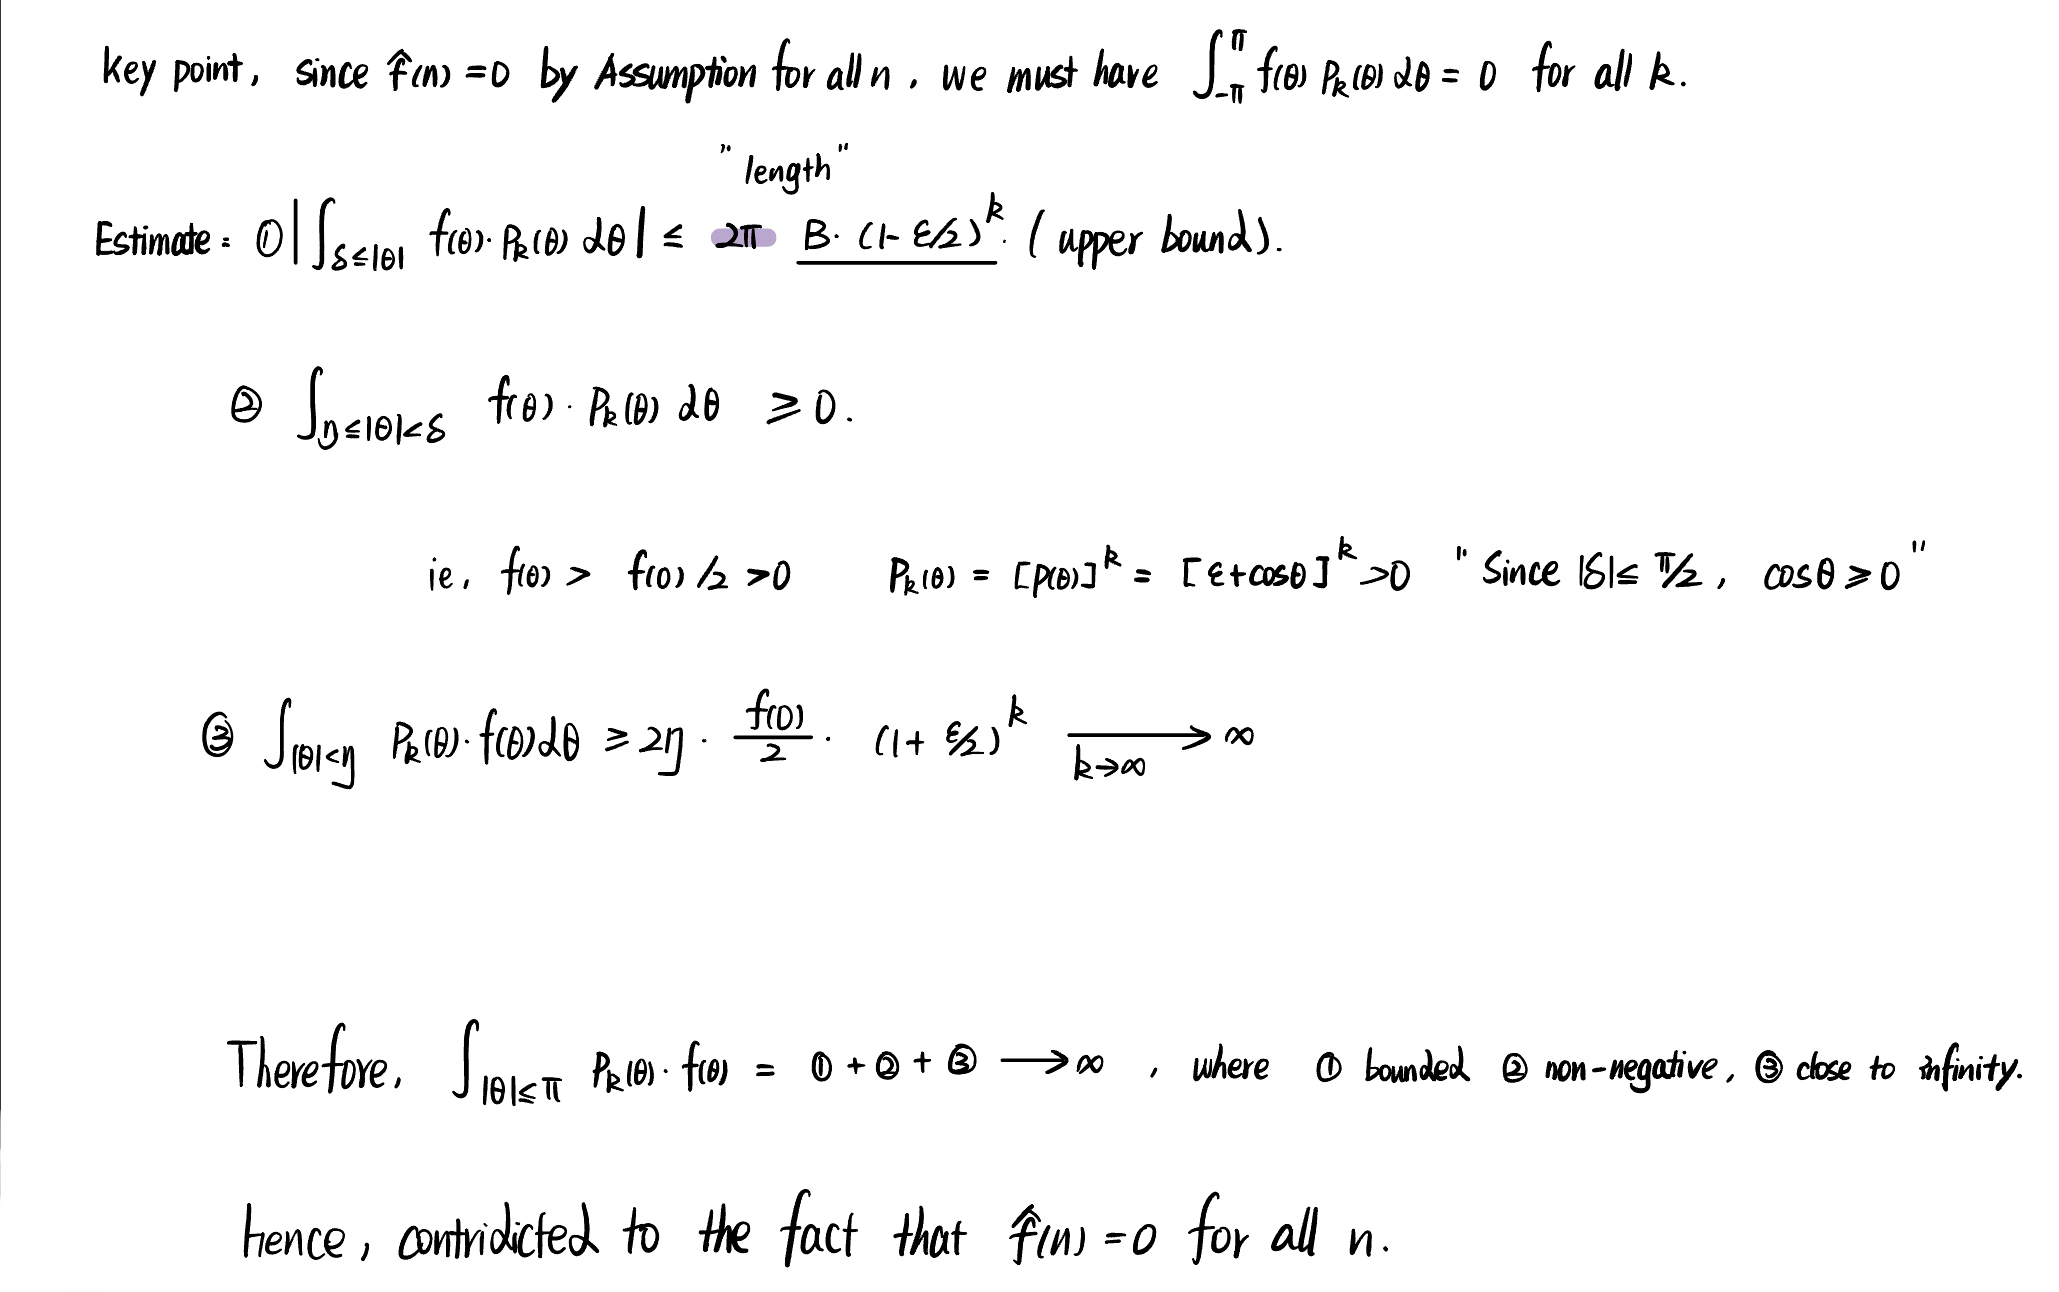 key point, since f̂(n) = 0 by Assumption for all n, we must have ∫_{-π}^{π} f(θ) P_k(θ) dθ = 0 for all k.
"length"
Estimate: ① |∫_{δ≤|θ|} f(θ)·P_k(θ) dθ| ≤ 2π B·(1-ε/2)^k. (upper bound).
② ∫_{η≤|θ|<δ} f(θ)·P_k(θ) dθ ≥ 0.
ie, f(θ) > f(0)/2 >0 P_k(θ) = [P(θ)]^k = [ε+cosθ]^k >0 "Since |δ|≤ π/2, cosθ ≥ 0"
③ ∫_{|θ|<η} P_k(θ)·f(θ)dθ ≥ 2η · f(0)/2 · (1+ ε/2)^k →_{k→∞} ∞
Therefore, ∫_{|θ|≤π} P_k(θ)·f(θ) = ①+②+③ → ∞, where ① bounded ② non-negative, ③ close to infinity.
hence, contridicted to the fact that f̂(n) = 0 for all n.